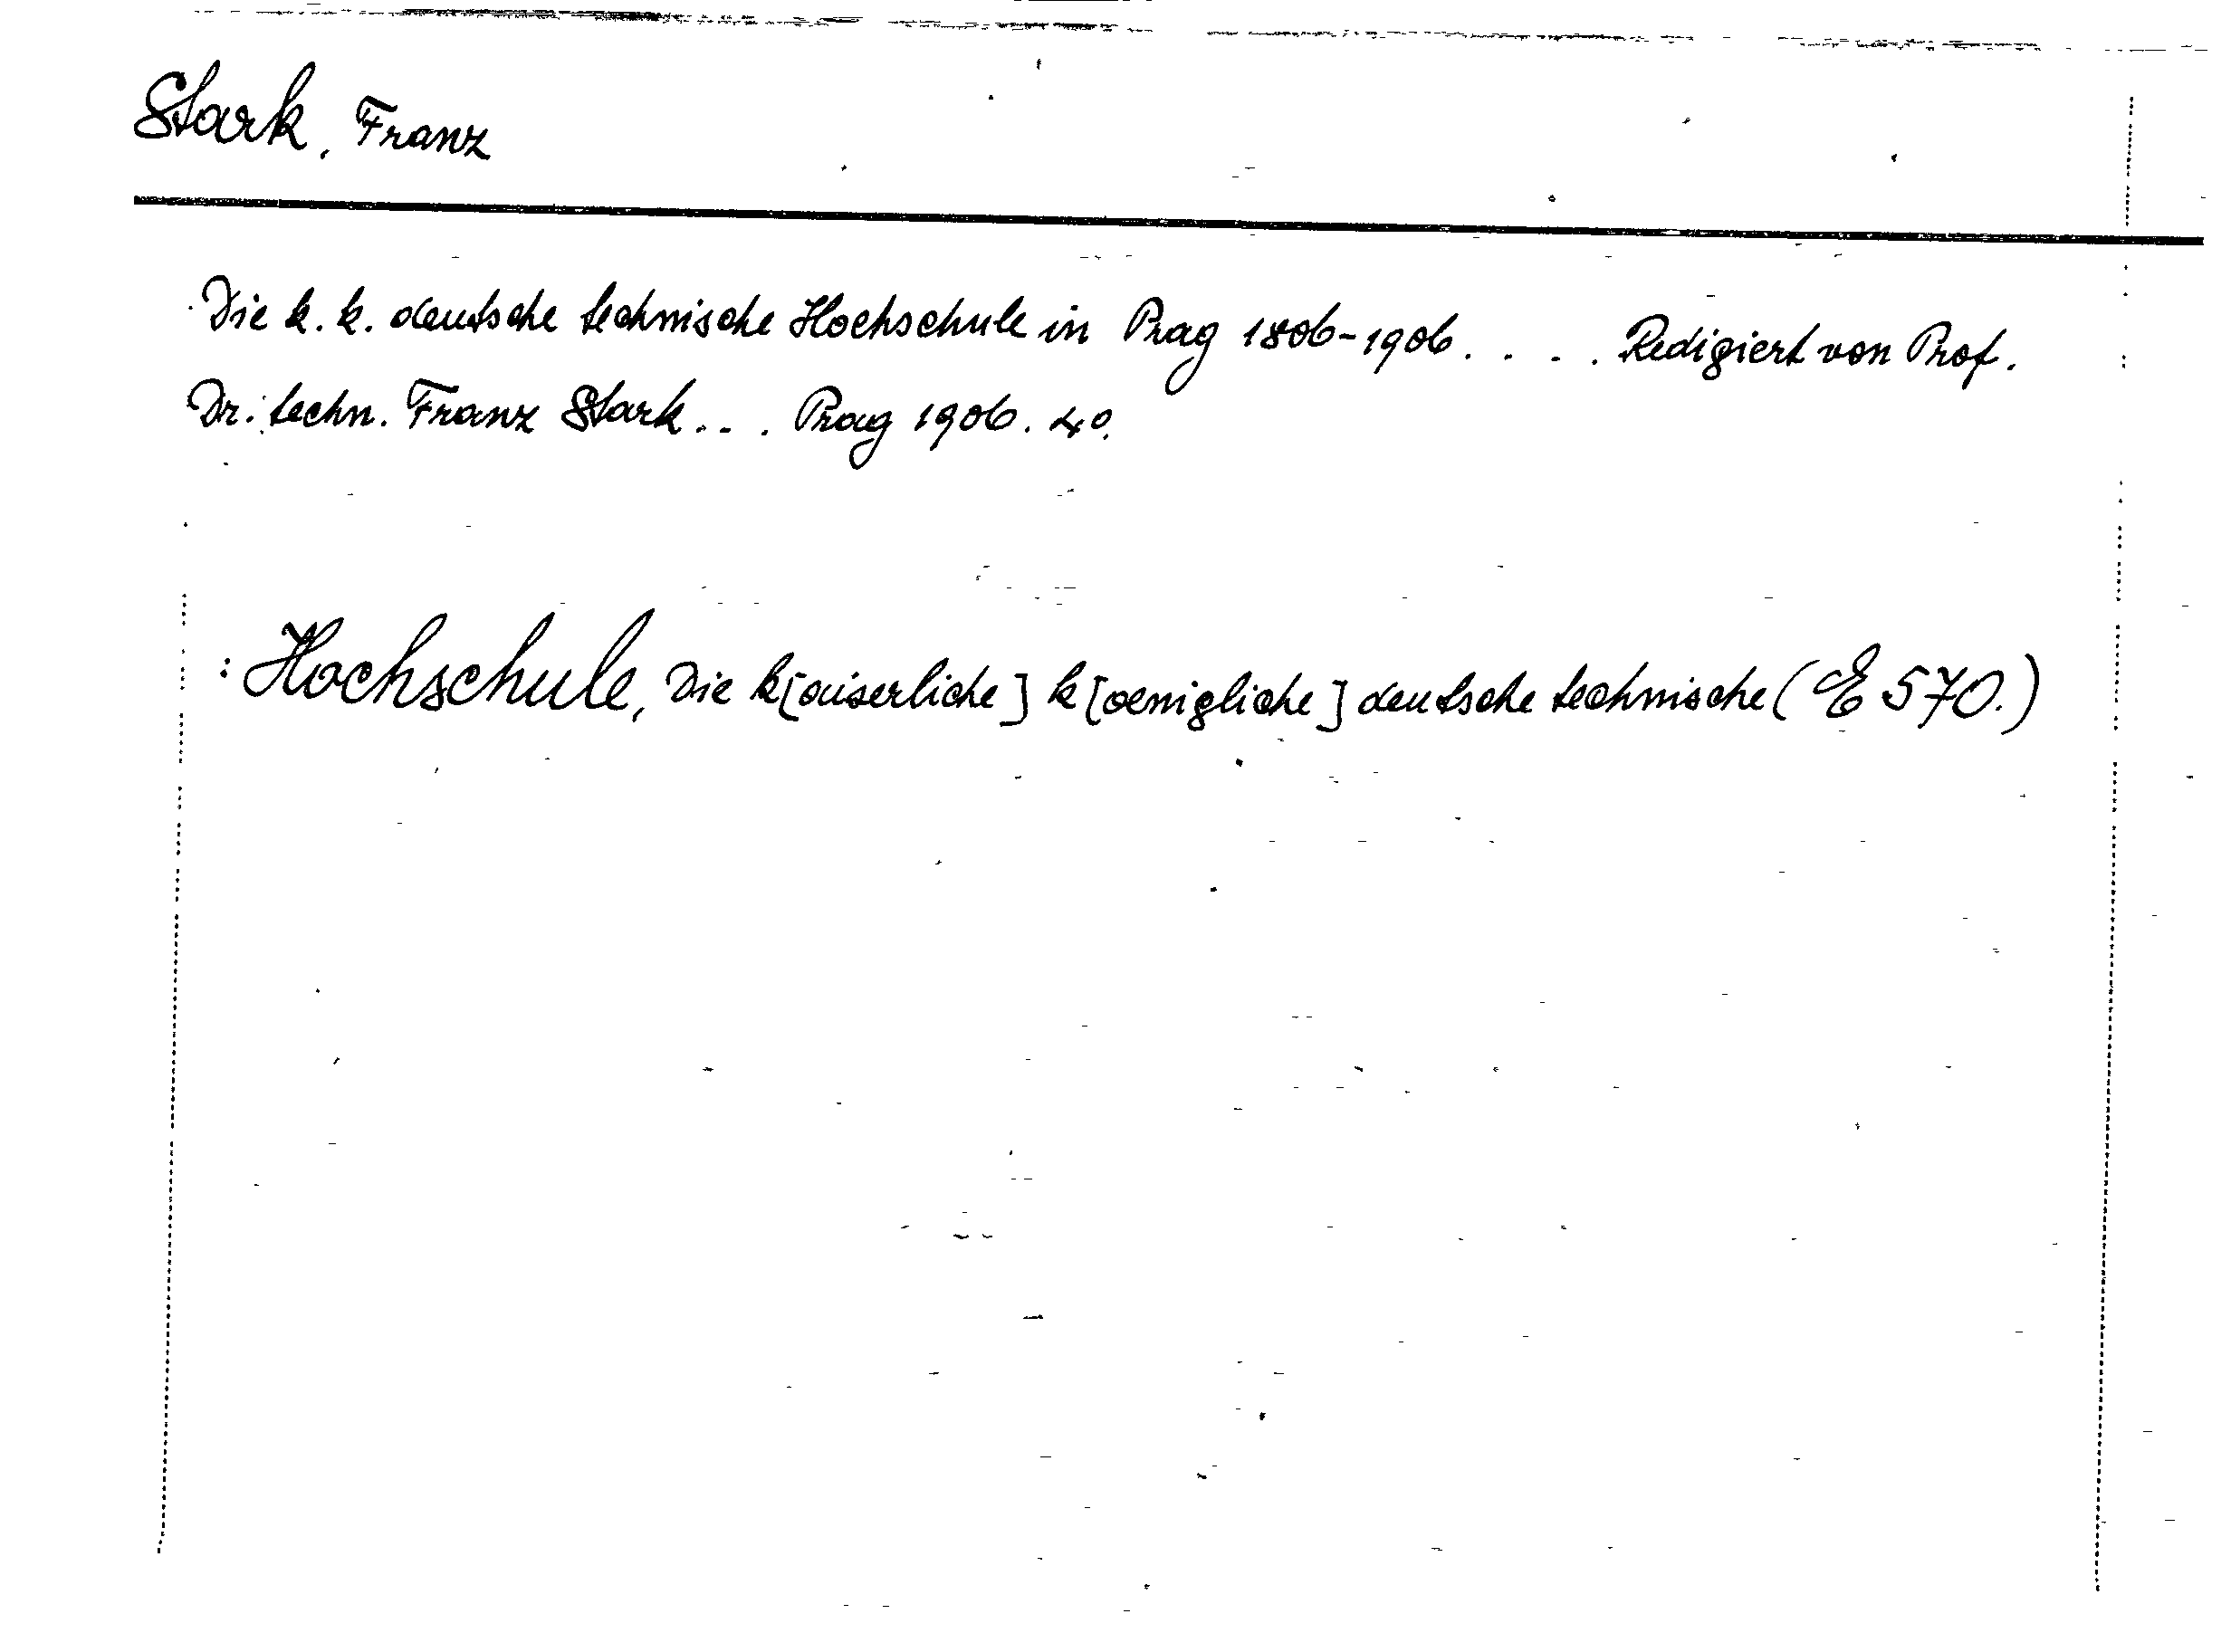 Stark, Franz
Die k. k. deutsche technische Hochschule in Prag 1806-1906. . . . Redigiert von Prof.
Dr. techn. Franz Stark... Prag 1906. 4°.
: Hochschule, Die k[aiserliche] k[oenigliche] deutsche technische (E 570.)